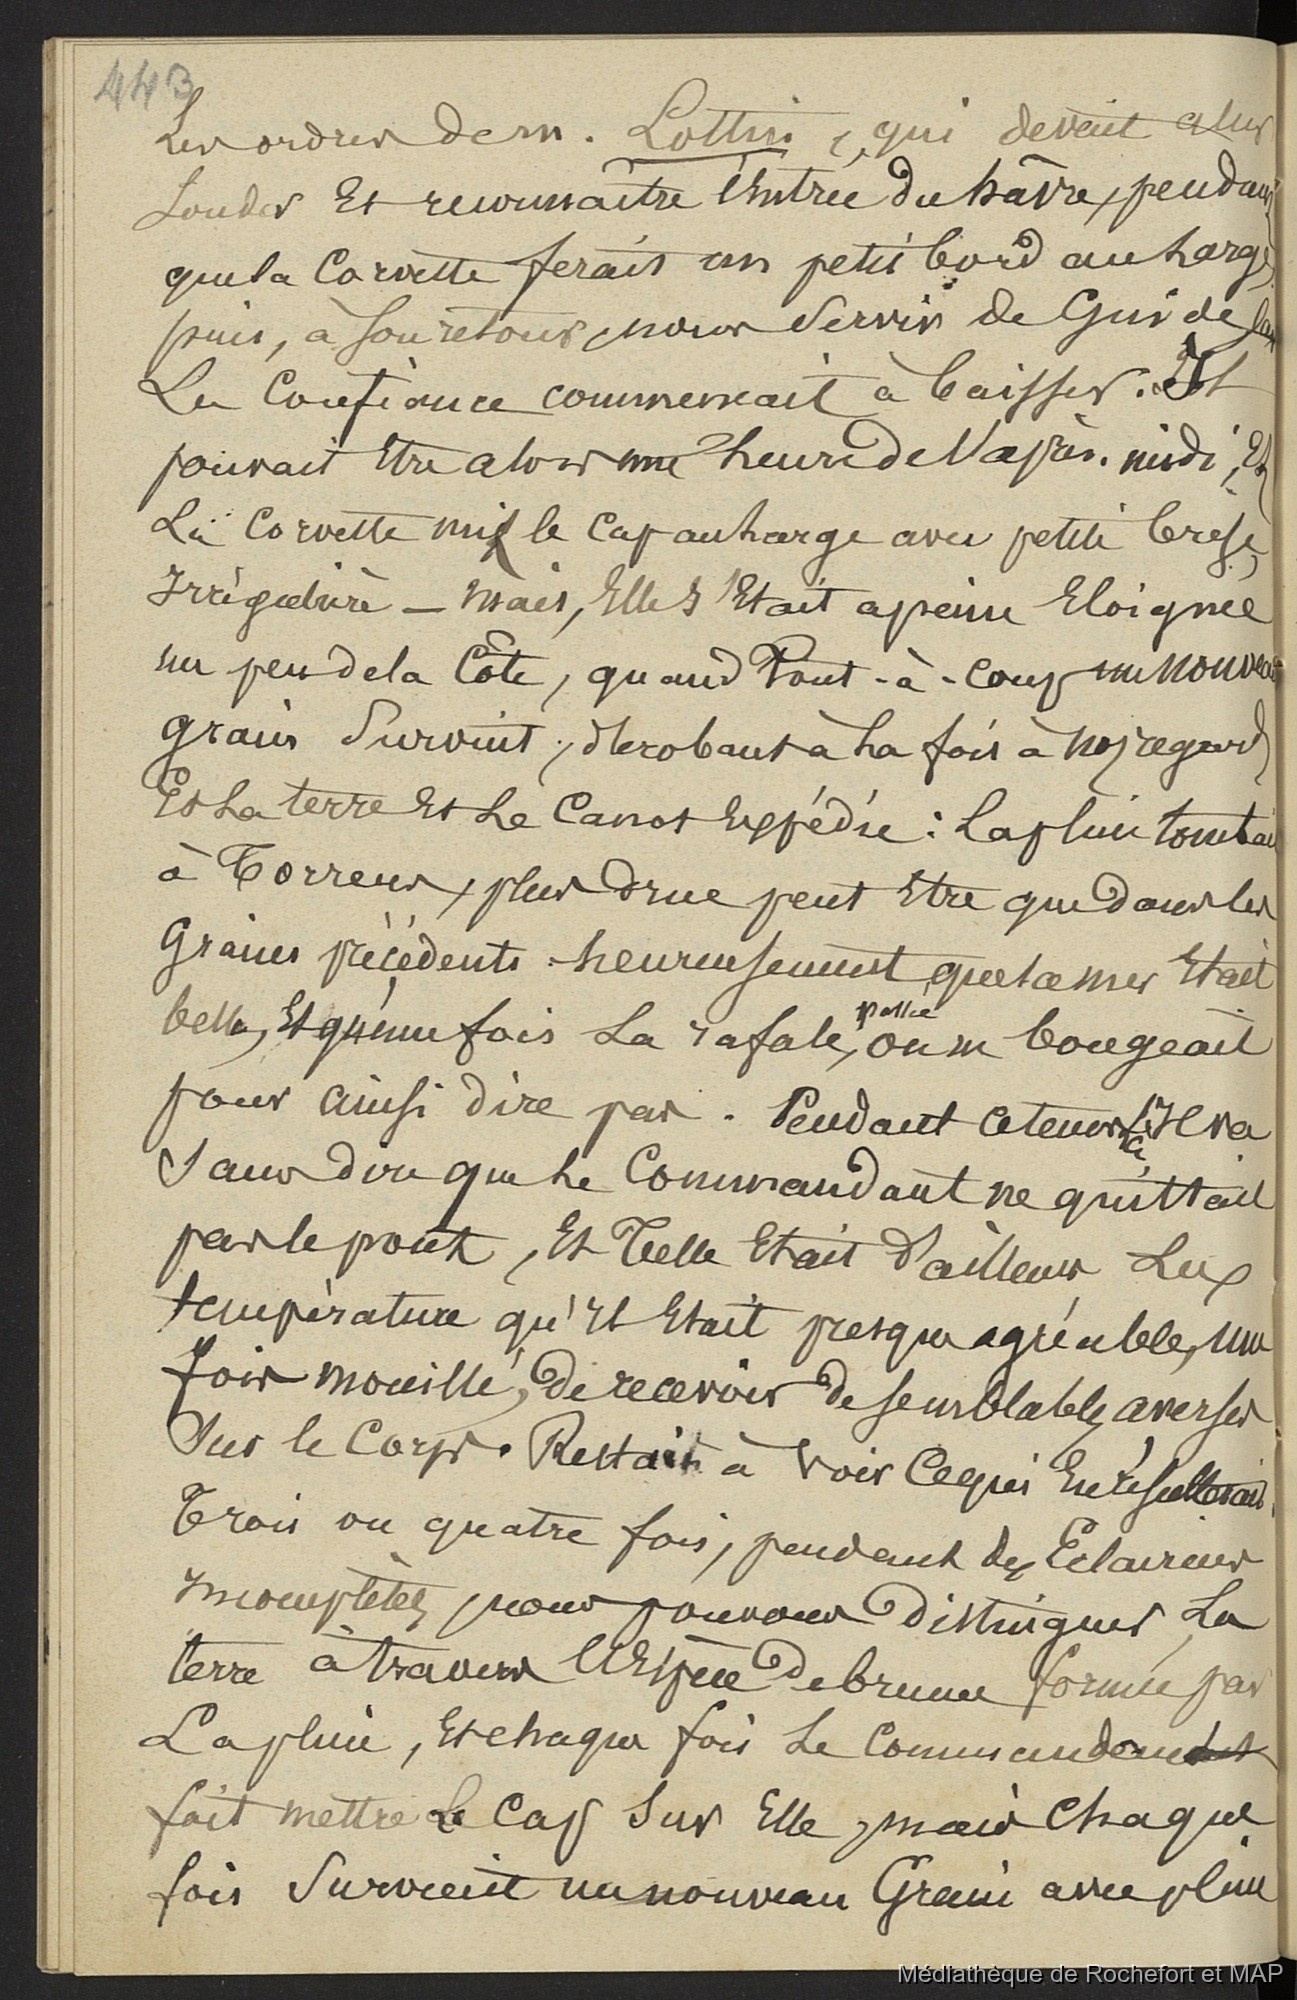 443
Les ordres de m. Lottin, qui devait aller
Sonder Et reconnaître l'Entrée du hâvre, pendant
que la Corvette ferait un petit bord au Large,
puis, à son retour, nous Servir de Guide
La Confiance commencait à baisser. Il
pouvait Etre alors une heure de l'après. midi, Et
La Corvette mit le Cap au Large avec petite brise
Irrégulière — mais, Elle S'Etait apeine Eloignée
un peu de la Côte, quand Tout-à-coup un nouveau
grain Survint, dérobant à La fois à nos regards
Et La terre Et Le Canot Expédié : La pluie tombait
à Torrens, plus drue peut Etre que dans les
Grains précédents. heureusement que La mer Etait
belle, Et qu'une fois La rafale, passée
on ne bougeait
pour ainsi dire pas. Pendant ce tems ci Il va
Sans dire que Le Commandant ne quittait
pas le pont, Et Telle Etait d'ailleurs La
température qu'Il Etait presque agréable, une
fois mouillé, de recevoir de semblables averses
Sur le Corps. Restait à voir Ce qui En résulterait.
Trois ou quatre fois, pendant des Eclaircies
Incomplètes, nous pouvons Distinguer La
terre à travers l'Espèce de brume formée par
La pluie, Et chaque fois Le Commandant
fait mettre Le Cap Sur Elle, mais Chaque
fois Survient un nouveau Grain avec pluie
Médiathèque de Rochefort et MAP